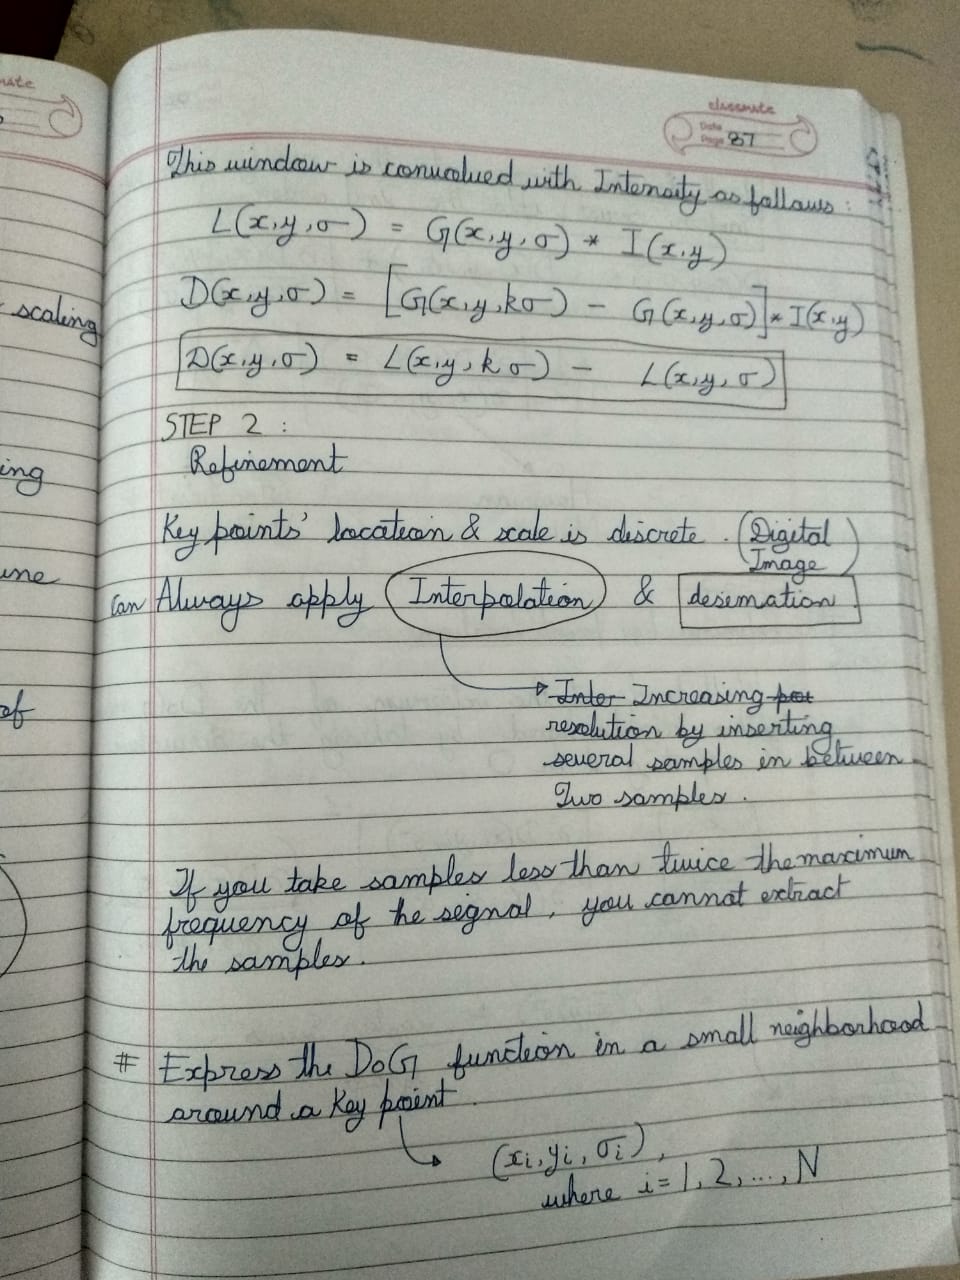 classmate
Date
Page 87
This window is convolved with Intensity as follows :
L(x,y,σ) = G(x,y,σ) * I(x,y)
D(x,y,σ) = [G(x,y,kσ) - G(x,y,σ)] * I(x,y)
D(x,y,σ) = L(x,y,kσ) - L(x,y,σ)
STEP 2 :
Refinement
Key points' location & scale is discrete . (Digital
Image)
Can Always apply Interpolation & desemation
Inter Increasing
resolution by inserting
several samples in between
Two samples .
If you take samples less than twice the maximum
frequency of the signal, you cannot extract
the samples .
# Express the DoG function in a small neighborhood
around a Key point .
(xi, yi, σi) ,
where i = 1, 2, ..., N
scaling
ing
of